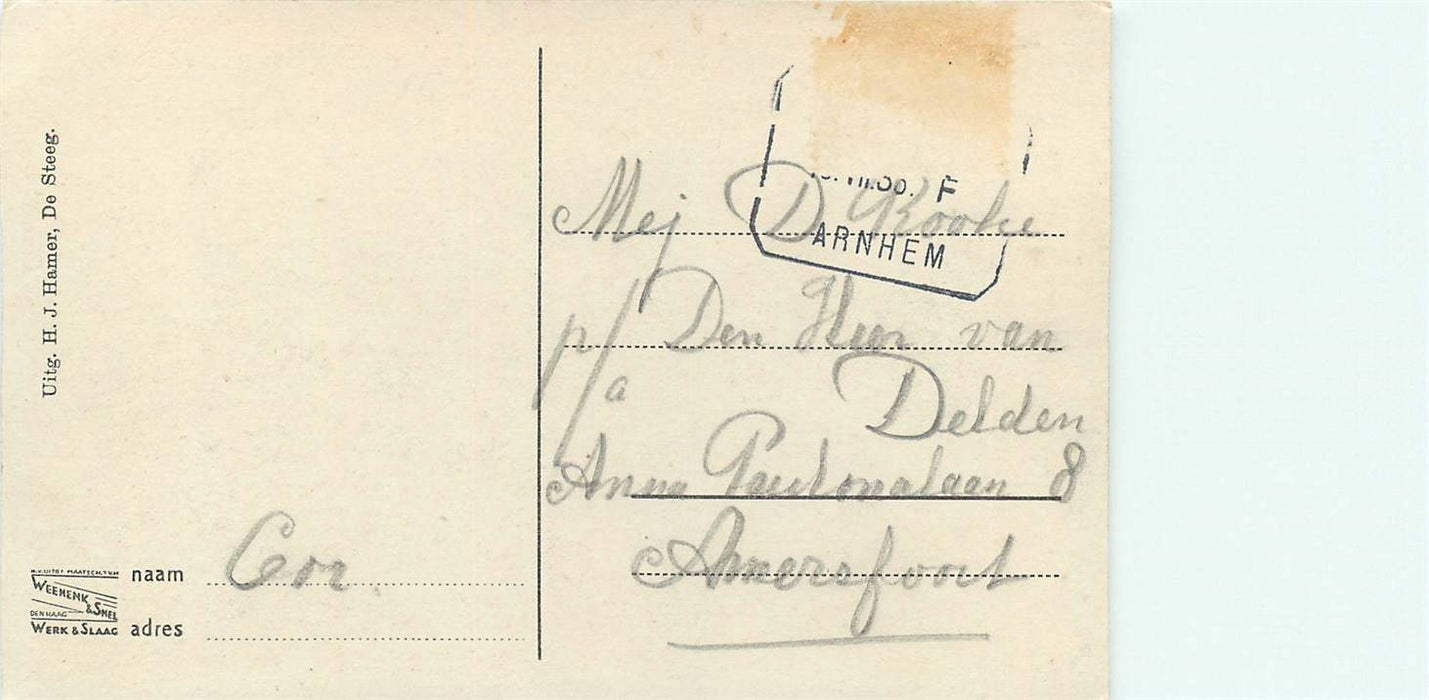 Uitg. H. J. Hamer, De Steeg.
VII.36. F
ARNHEM
Mej D Kooke
p/a Den Heer van
Delden
Anna Paulonalaan 8
Amersfoort
naam Cor.
adres
WEENENK
& SNEL
DEN HAAG
WERK & SLAAG